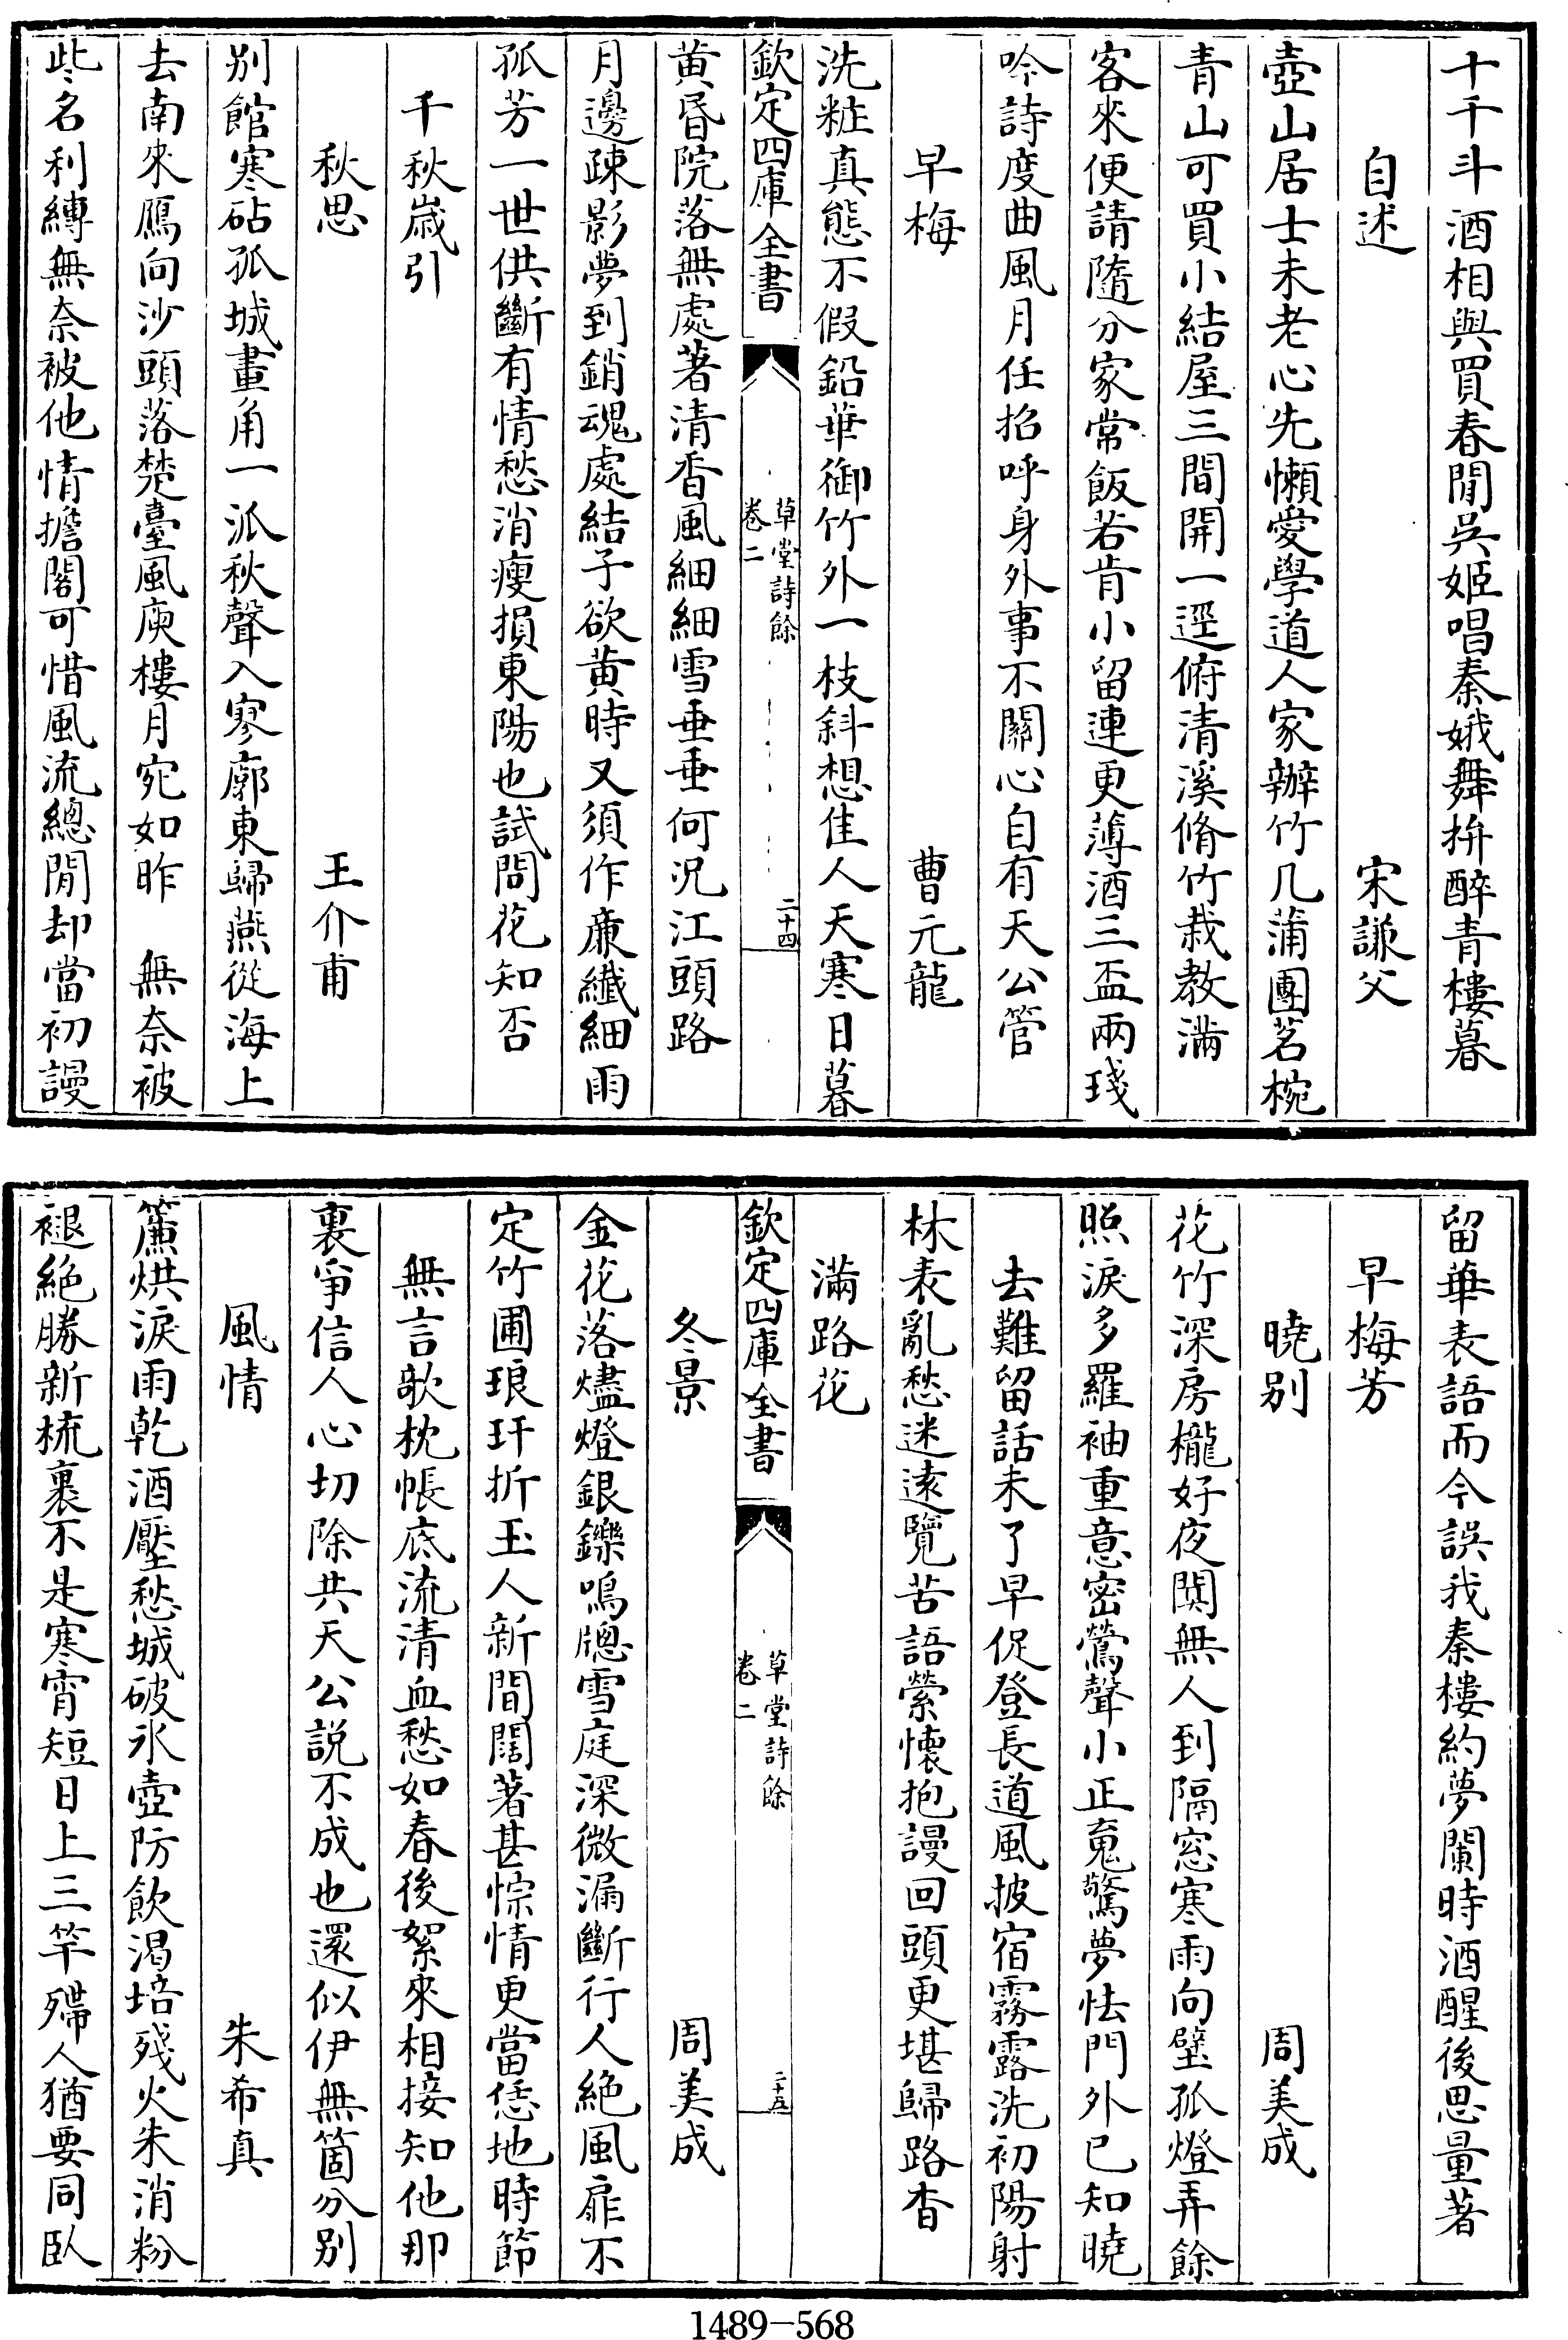 十千斗酒相與買春閒吳姬唱秦娥舞拚醉青樓暮
自述 宋謙父
壺山居士未老心先懶愛學道人家辦竹几蒲團茗椀
青山可買小結屋三間開一逕俯清溪脩竹栽教滿
客來便請隨分家常飯若肯小留連更薄酒三盃兩琖
吟詩度曲風月任招呼身外事不關心自有天公管
早梅 曹元龍
洗粧真態不假鉛華御竹外一枝斜想佳人天寒日暮
欽定四庫全書 草堂詩餘 卷二 二十四
黃昏院落無處著清香風細細雪垂垂何況江頭路
月邊疎影夢到銷魂處結子欲黃時又須作廉纖細雨
孤芳一世供斷有情愁消瘦損東陽也試問花知否
千秋歲引
秋思 王介甫
別館寒砧孤城畫角一派秋聲入寥廓東歸燕從海上
去南來鴈向沙頭落楚臺風庾樓月宛如昨 無奈被
些名利縛無奈被他情擔閣可惜風流總閒却當初謾
留華表語而今誤我秦樓約夢闌時酒醒後思量著
早梅芳
曉别 周美成
花竹深房櫳好夜闃無人到隔窓寒雨向壁孤燈弄餘
照淚多羅袖重意密鶯聲小正䰟驚夢怯門外已知曉
去難留話未了早促登長道風披宿霧露洗初陽射
林表亂愁迷遠覽苦語縈懷抱謾回頭更堪歸路杳
滿路花
欽定四庫全書 草堂詩餘 卷二 二十五
冬景 周美成
金花落燼燈銀鑠鳴牎雪庭深微漏斷行人絶風扉不
定竹圃琅玕折玉人新間闊著甚悰情更當恁地時節
無言欹枕帳底流清血愁如春後絮來相接知他那
裏爭信人心切除共天公説不成也還似伊無箇分别
風情 朱希真
簾烘淚雨乾酒壓愁城破氷壺防飲渴培殘火朱消粉
褪絶勝新梳裹不是寒宵短日上三竿殢人猶要同臥
1489-568